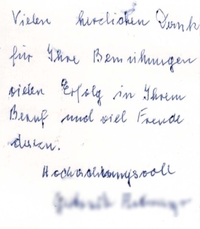 Vielen herzlichen Dank
für Ihre Bemühungen
vielen Erfolg in Ihrem
Beruf und viel Freude
daran.
Hochachtungsvoll